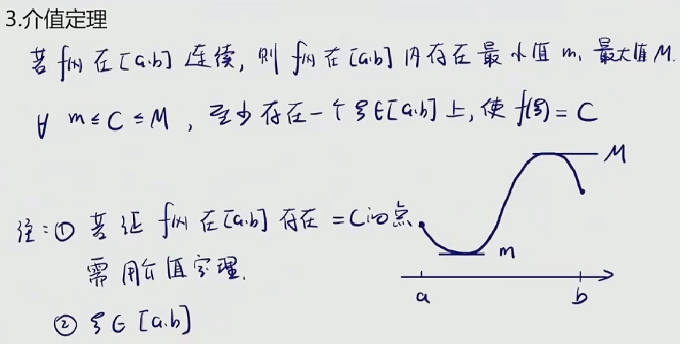 3.介值定理
若 f(x) 在 [a.b] 连续, 则 f(x) 在 [a.b] 内存在最小值 m, 最大值 M.
∀ m ≤ C ≤ M , 至少存在一个 ξ∈[a.b] 上, 使 f(ξ) = C
M
注: ① 若证 f(x) 在 [a.b] 存在 =C的点.
m
需用介值定理.
a b
② ξ∈ [a.b]